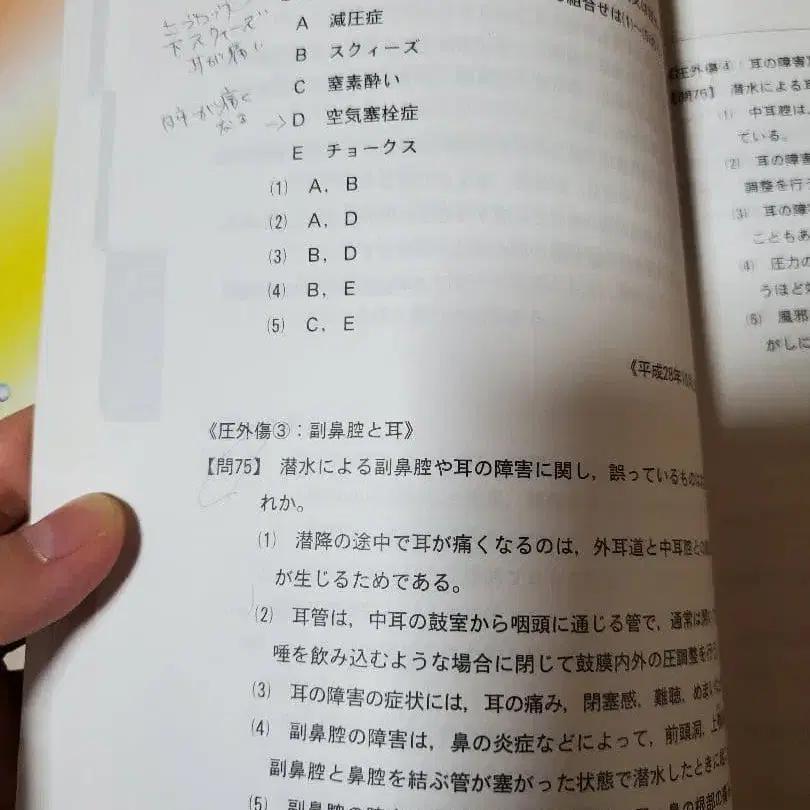 下スクィーズ
耳が痛い
組合せは(1)～
A 減圧症
B スクィーズ
C 窒素酔い
D 空気塞栓症
E チョークス
(1) A，B
(2) A，D
(3) B，D
(4) B，E
(5) C，E
《平成28年10月
《圧外傷③：副鼻腔と耳》
【問75】 潜水による副鼻腔や耳の障害に関し，誤っているものは
れか。
(1) 潜降の途中で耳が痛くなるのは，外耳道と中耳腔との
が生じるためである。
(2) 耳管は，中耳の鼓室から咽頭に通じる管で，通常は開
唾を飲み込むような場合に閉じて鼓膜内外の圧調整を行う
(3) 耳の障害の症状には，耳の痛み，閉塞感，難聴，めまい
(4) 副鼻腔の障害は，鼻の炎症などによって，前頭洞，上
副鼻腔と鼻腔を結ぶ管が塞がった状態で潜水したときに
(5) 副鼻腔の
鼻の根部の
圧外傷④：耳の障害
【問76】 潜水による耳
(1) 中耳腔は，
ている。
(2) 耳の障害
調整を行う
(3) 耳の障害
こともあ
(4) 圧力の
うほど
(5) 風邪
がしに